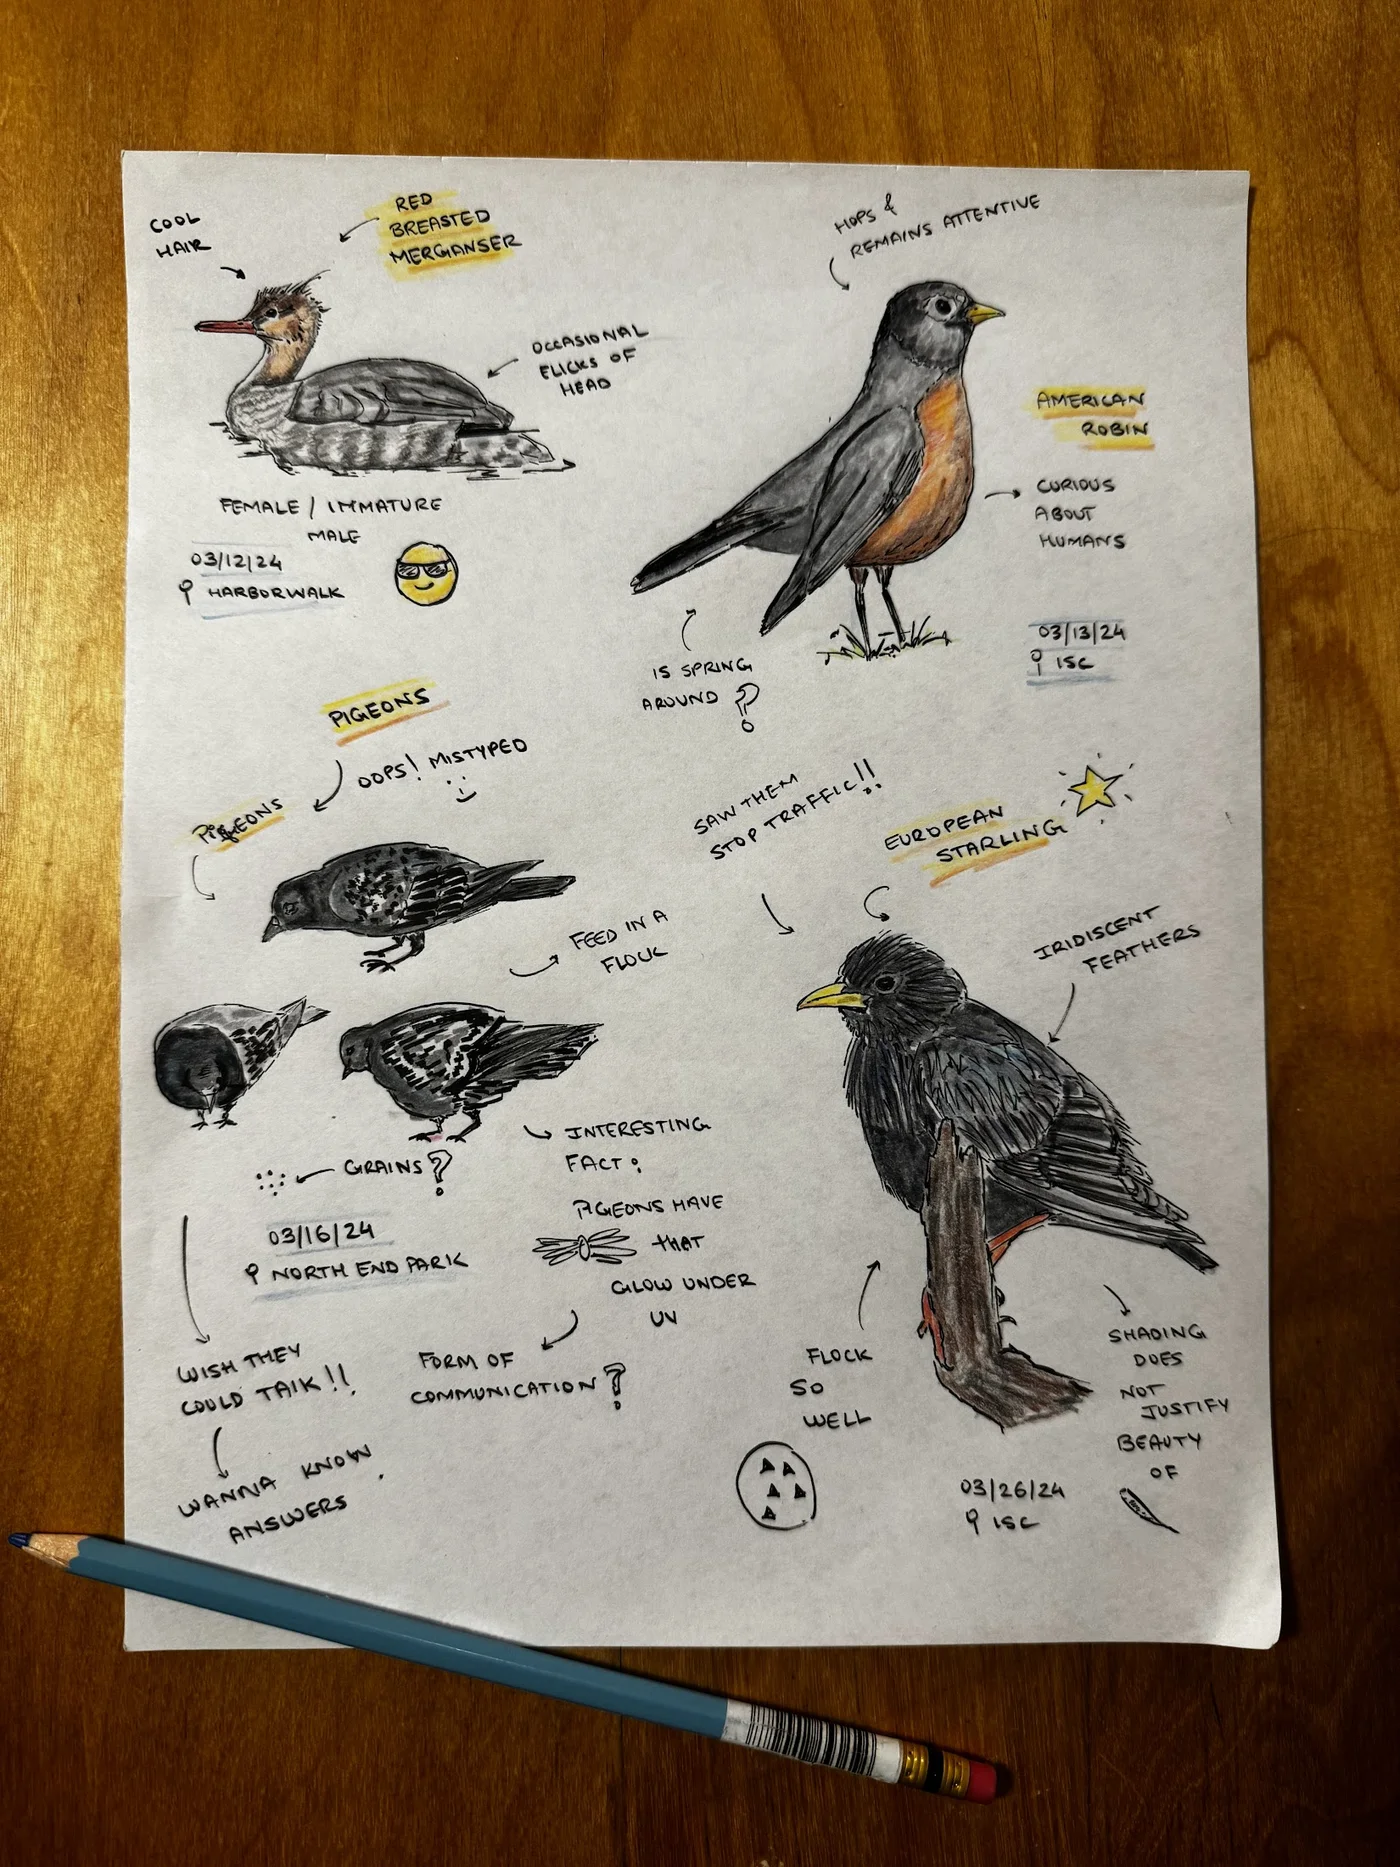 COOL
HAIR
RED
BREASTED
MERGANSER
OCCASIONAL
FLICKS OF
HEAD
FEMALE / IMMATURE
MALE
03/12/24
HARBORWALK
HOPS &
REMAINS ATTENTIVE
AMERICAN
ROBIN
CURIOUS
ABOUT
HUMANS
03/13/24
ISC
IS SPRING
AROUND ?
PIGEONS
OOPS! MISTYPED
PIGEONS
FEED IN A
FLOCK
GRAINS ?
03/16/24
NORTH END PARK
INTERESTING
FACT :
PIGEONS HAVE
THAT
GLOW UNDER
UV
FORM OF
COMMUNICATION ?
WISH THEY
COULD TALK !!
WANNA KNOW
ANSWERS
SAW THEM
STOP TRAFFIC !!
EUROPEAN
STARLING
IRIDISCENT
FEATHERS
FLOCK
SO
WELL
SHADING
DOES
NOT
JUSTIFY
BEAUTY
OF
03/26/24
ISC